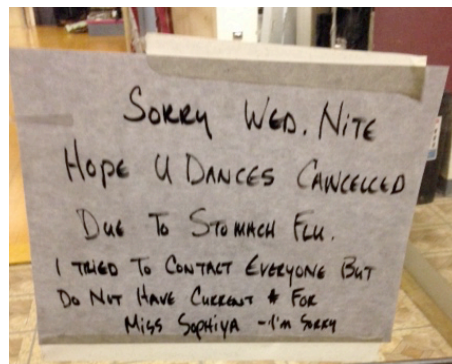 Sorry Wed. Nite
Hope U Dances Cancelled
Due To Stomach Flu.
I tried To Contact Everyone But
Do Not Have Current # For
Miss Sophiya - I'm Sorry